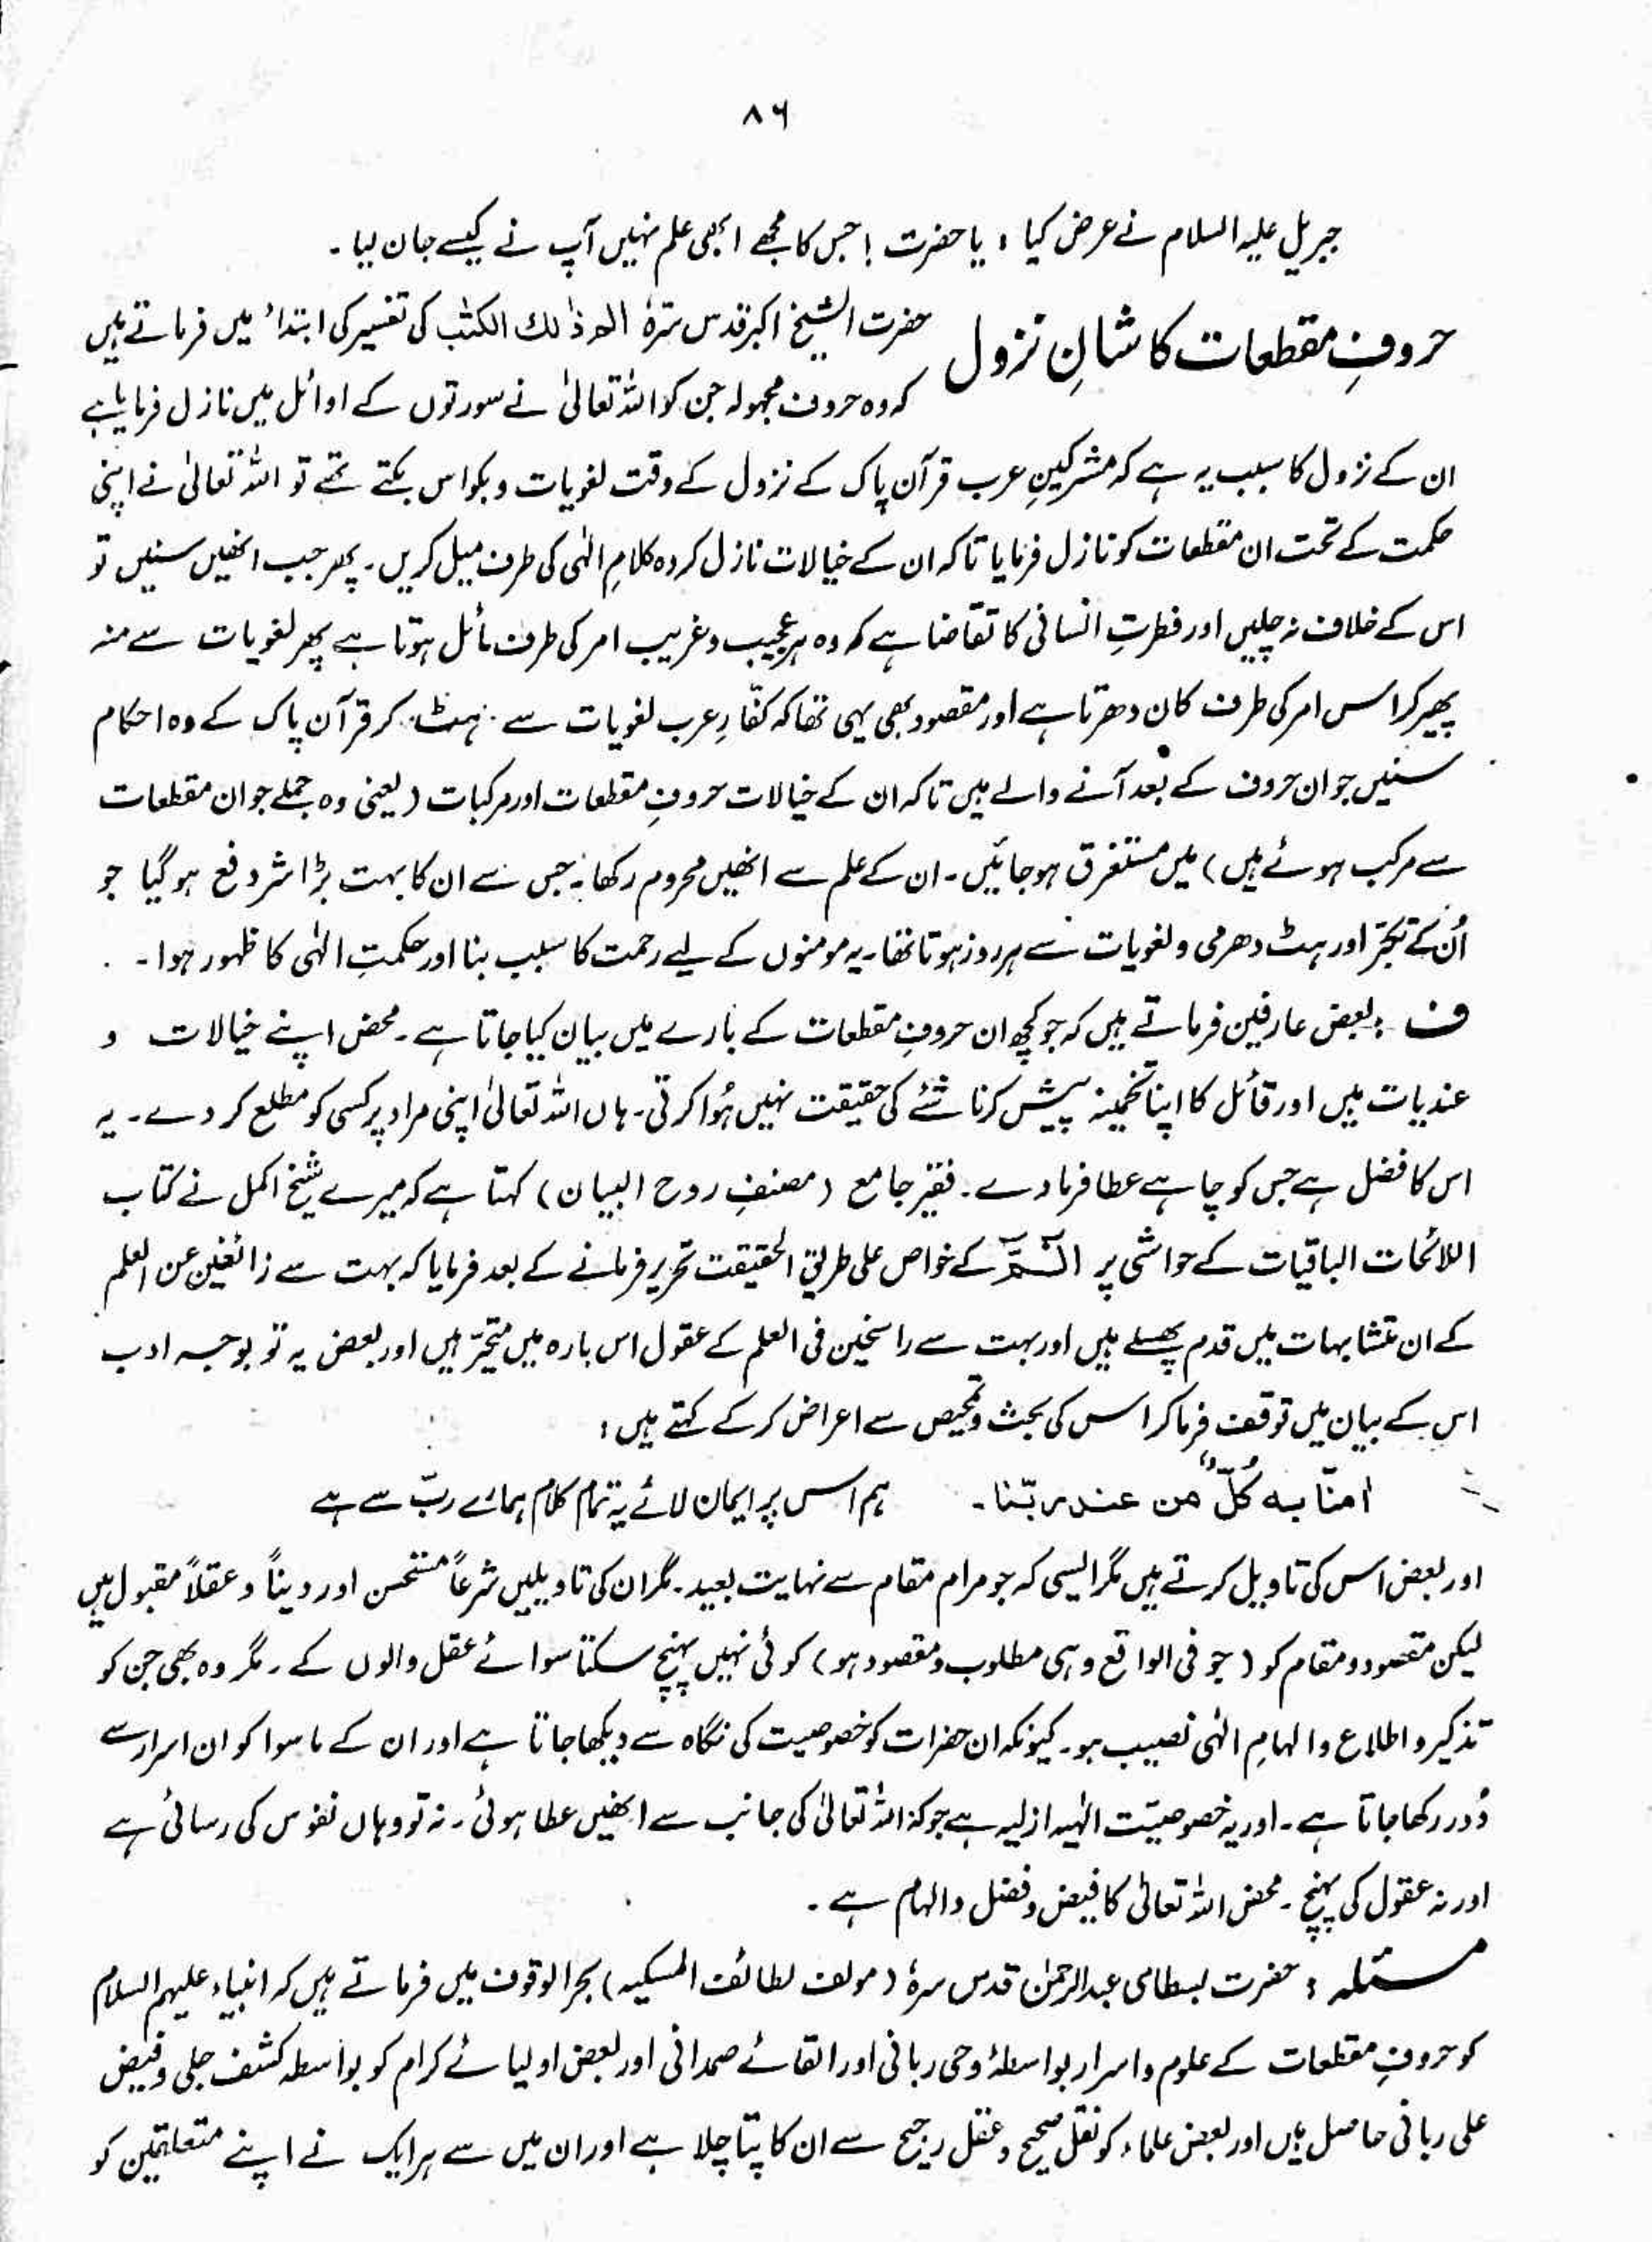 ۸۶
جبریل علیہ السلام نے عرض کیا : یا حضرت ! جس کا مجھے ابھی علم نہیں آپ نے کیسے جان لیا ۔
حروفِ مقطعات کا شانِ نزول
حضرت الشیخ اکبر قدس سرہٗ الم ذٰلك الکتٰب کی تفسیر کی ابتداء میں فرماتے ہیں
کہ وہ حروف مجہولہ جن کو اللہ تعالیٰ نے سورتوں کے اوائل میں نازل فرمایا ہے
ان کے نزول کا سبب یہ ہے کہ مشرکینِ عرب قرآن پاک کے نزول کے وقت لغویات و بکواس بکتے تھے تو اللہ تعالیٰ نے اپنی
حکمت کے تحت ان مقطعات کو نازل فرمایا تاکہ ان کے خیالات نازل کردہ کلامِ الٰہی کی طرف میل کریں ۔ پھر جب انھیں سنیں تو
اس کے خلاف نہ چلیں اور فطرتِ انسانی کا تقاضا ہے کہ وہ ہر عجیب و غریب امر کی طرف مائل ہوتا ہے پھر لغویات سے منہ
پھیر کر اس امر کی طرف کان دھرتا ہے اور مقصود بھی یہی تھا کہ کفّارِ عرب لغویات سے ہٹ کر قرآن پاک کے وہ احکام
سنیں جو ان حروف کے بعد آنے والے ہیں تاکہ ان کے خیالات حروفِ مقطعات اور مرکبات ( یعنی وہ جملے جو ان مقطعات
سے مرکب ہوئے ہیں ) میں مستغرق ہوجائیں ۔ ان کے علم سے انھیں محروم رکھا ۔ جس سے ان کا بہت بڑا شر دفع ہو گیا جو
اُن کے تکبّر اور ہٹ دھرمی و لغویات سے ہر روز ہوتا تھا ۔ یہ مومنوں کے لیے رحمت کا سبب بنا اور حکمتِ الٰہی کا ظہور ہوا ۔
ف : بعض عارفین فرماتے ہیں کہ جو کچھ ان حروفِ مقطعات کے بارے میں بیان کیا جاتا ہے ۔ محض اپنے خیالات و
عندیات ہیں اور قائل کا اپنا تخمینہ پیش کرنا شئے کی حقیقت نہیں ہُوا کرتی ۔ ہاں اللہ تعالیٰ اپنی مراد پر کسی کو مطلع کر دے ۔ یہ
اس کا فضل ہے جس کو چاہے عطا فرما دے ۔ فقیر جامع ( مصنفِ روح البیان ) کہتا ہے کہ میرے شیخ اکمل نے کتاب
اللائحات الباقیات کے حواشی پر الٓمّٓ کے خواص علی طریق الحقیقت تحریر فرمانے کے بعد فرمایا کہ بہت سے زائغین عن العلم
کے ان متشابہات میں قدم پھسلے ہیں اور بہت سے راسخین فی العلم کے عقول اس بارہ میں متحیّر ہیں اور بعض یہ تو بوجہ ادب
اس کے بیان میں توقف فرما کر اس کی بحث و تمحیص سے اعراض کر کے کہتے ہیں :
اٰمنّا بہ کُلٌّ من عند ربّنا ۔ ہم اس پر ایمان لائے یہ تمام کلام ہمارے ربّ سے ہے
اور بعض اس کی تاویل کرتے ہیں مگر ایسی کہ جو مرام مقام سے نہایت بعید ۔ مگر ان کی تاویلیں شرعاً مستحسن اور دیناً و عقلاً مقبول ہیں
لیکن مقصود و مقام کو ( جو فی الواقع وہی مطلوب و مقصود ہو ) کوئی نہیں پہنچ سکتا سوائے عقل والوں کے ۔ مگر وہ بھی جن کو
تذکیر و اطلاع و الہامِ الٰہی نصیب ہو ۔ کیونکہ ان حضرات کو خصوصیت کی نگاہ سے دیکھا جاتا ہے اور ان کے ماسوا کو ان اسرار سے
دُور رکھا جاتا ہے ۔ اور یہ خصوصیّت الٰہیہ ازلیہ ہے جو کہ اللہ تعالیٰ کی جانب سے انھیں عطا ہوئی ۔ نہ تو وہاں نفوس کی رسائی ہے
اور نہ عقول کی پہنچ ۔ محض اللہ تعالیٰ کا فیض و فضل و الہام ہے ۔
مسئلہ : حضرت بسطامی عبدالرحمٰن قدس سرہٗ ( مولف لطائف المسکیہ ) بحر الوقوف میں فرماتے ہیں کہ انبیاء علیہم السلام
کو حروفِ مقطعات کے علوم و اسرار بواسطۂ وحی ربانی اور القائے صمدانی اور بعض اولیائے کرام کو بواسطہ کشف جلی و فیض
علی ربانی حاصل ہیں اور بعض علماء کو نقل صحیح و عقل رجیح سے ان کا پتا چلا ہے اور ان میں سے ہر ایک نے اپنے متعلقین کو